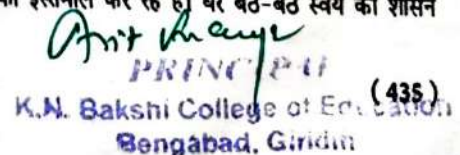 इस्तेमाल कर रहे हों। घर बैठे-बैठे स्वयं को शासित
PRINCIPAL
(435)
K.N. Bakshi College of Education
Bengabad, Giridih